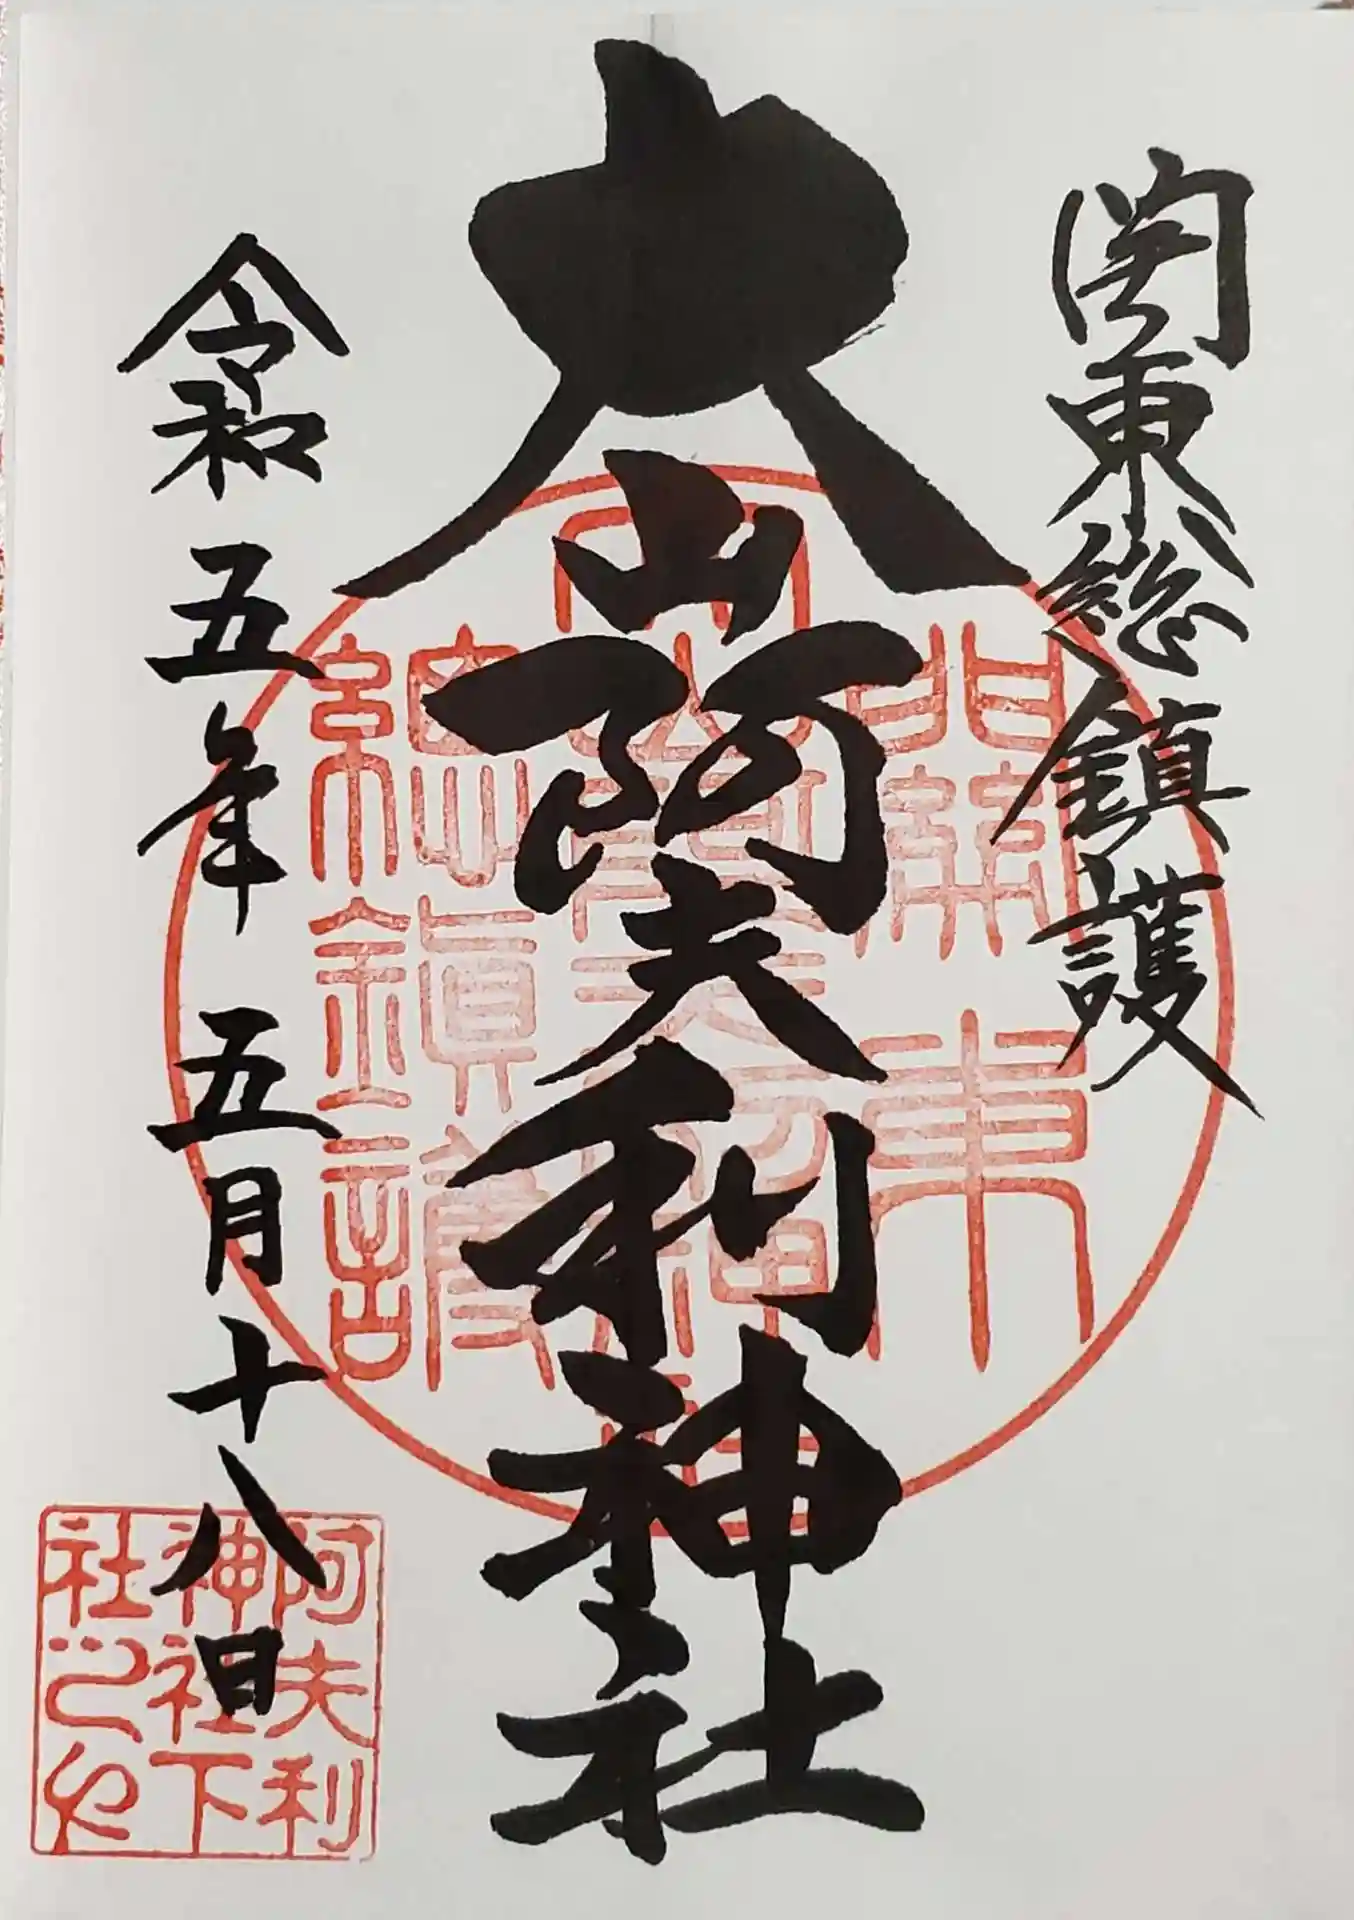 関東総鎮護
大山阿夫利神社
令和五年 五月十八日
關東
總鎮護
阿夫利
神社下
社之印